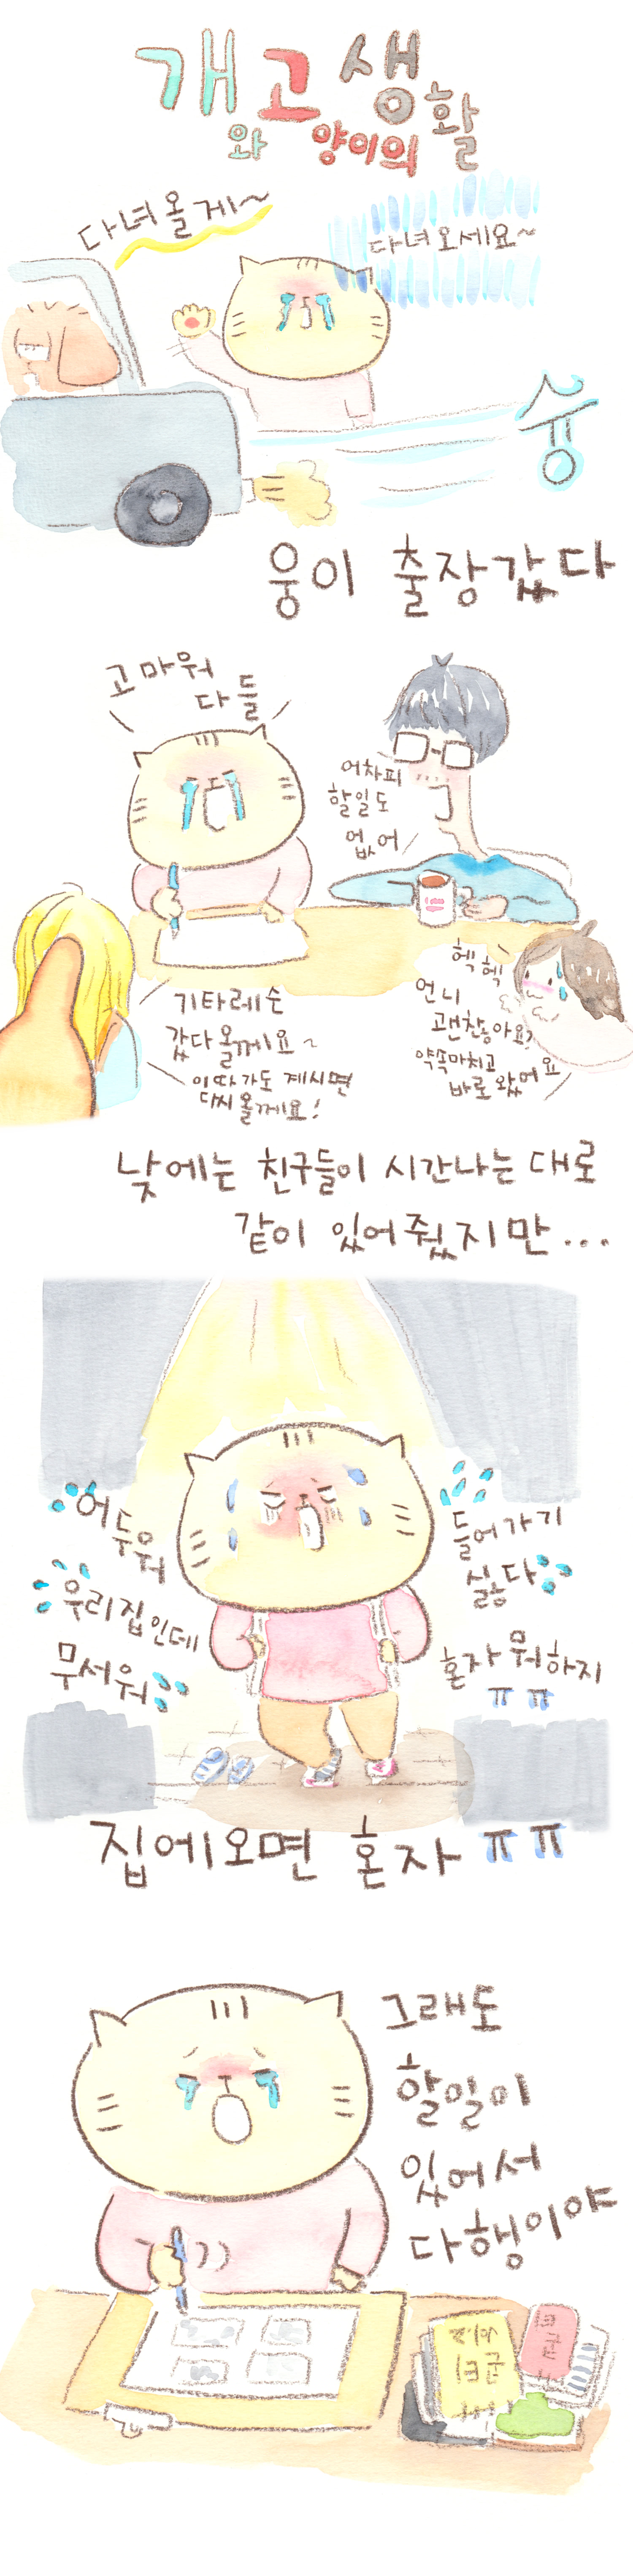 개와 고양이의 생활
다녀올게~
다녀오세요~
슝
웅이 출장갔다
고마워
다들
어차피
할일도
없어
기타레슨
갔다 올께요~
이따가도 계시면
다시 올께요!
헥헥
언니
괜찮아요?
약속마치고
바로 왔어요
낮에는 친구들이 시간나는 대로
같이 있어줬지만...
어두워
우리집인데
무서워
들어가기
싫다
혼자 뭐하지
ㅠㅠ
집에오면 혼자 ㅠㅠ
그래도
할일이
있어서
다행이야